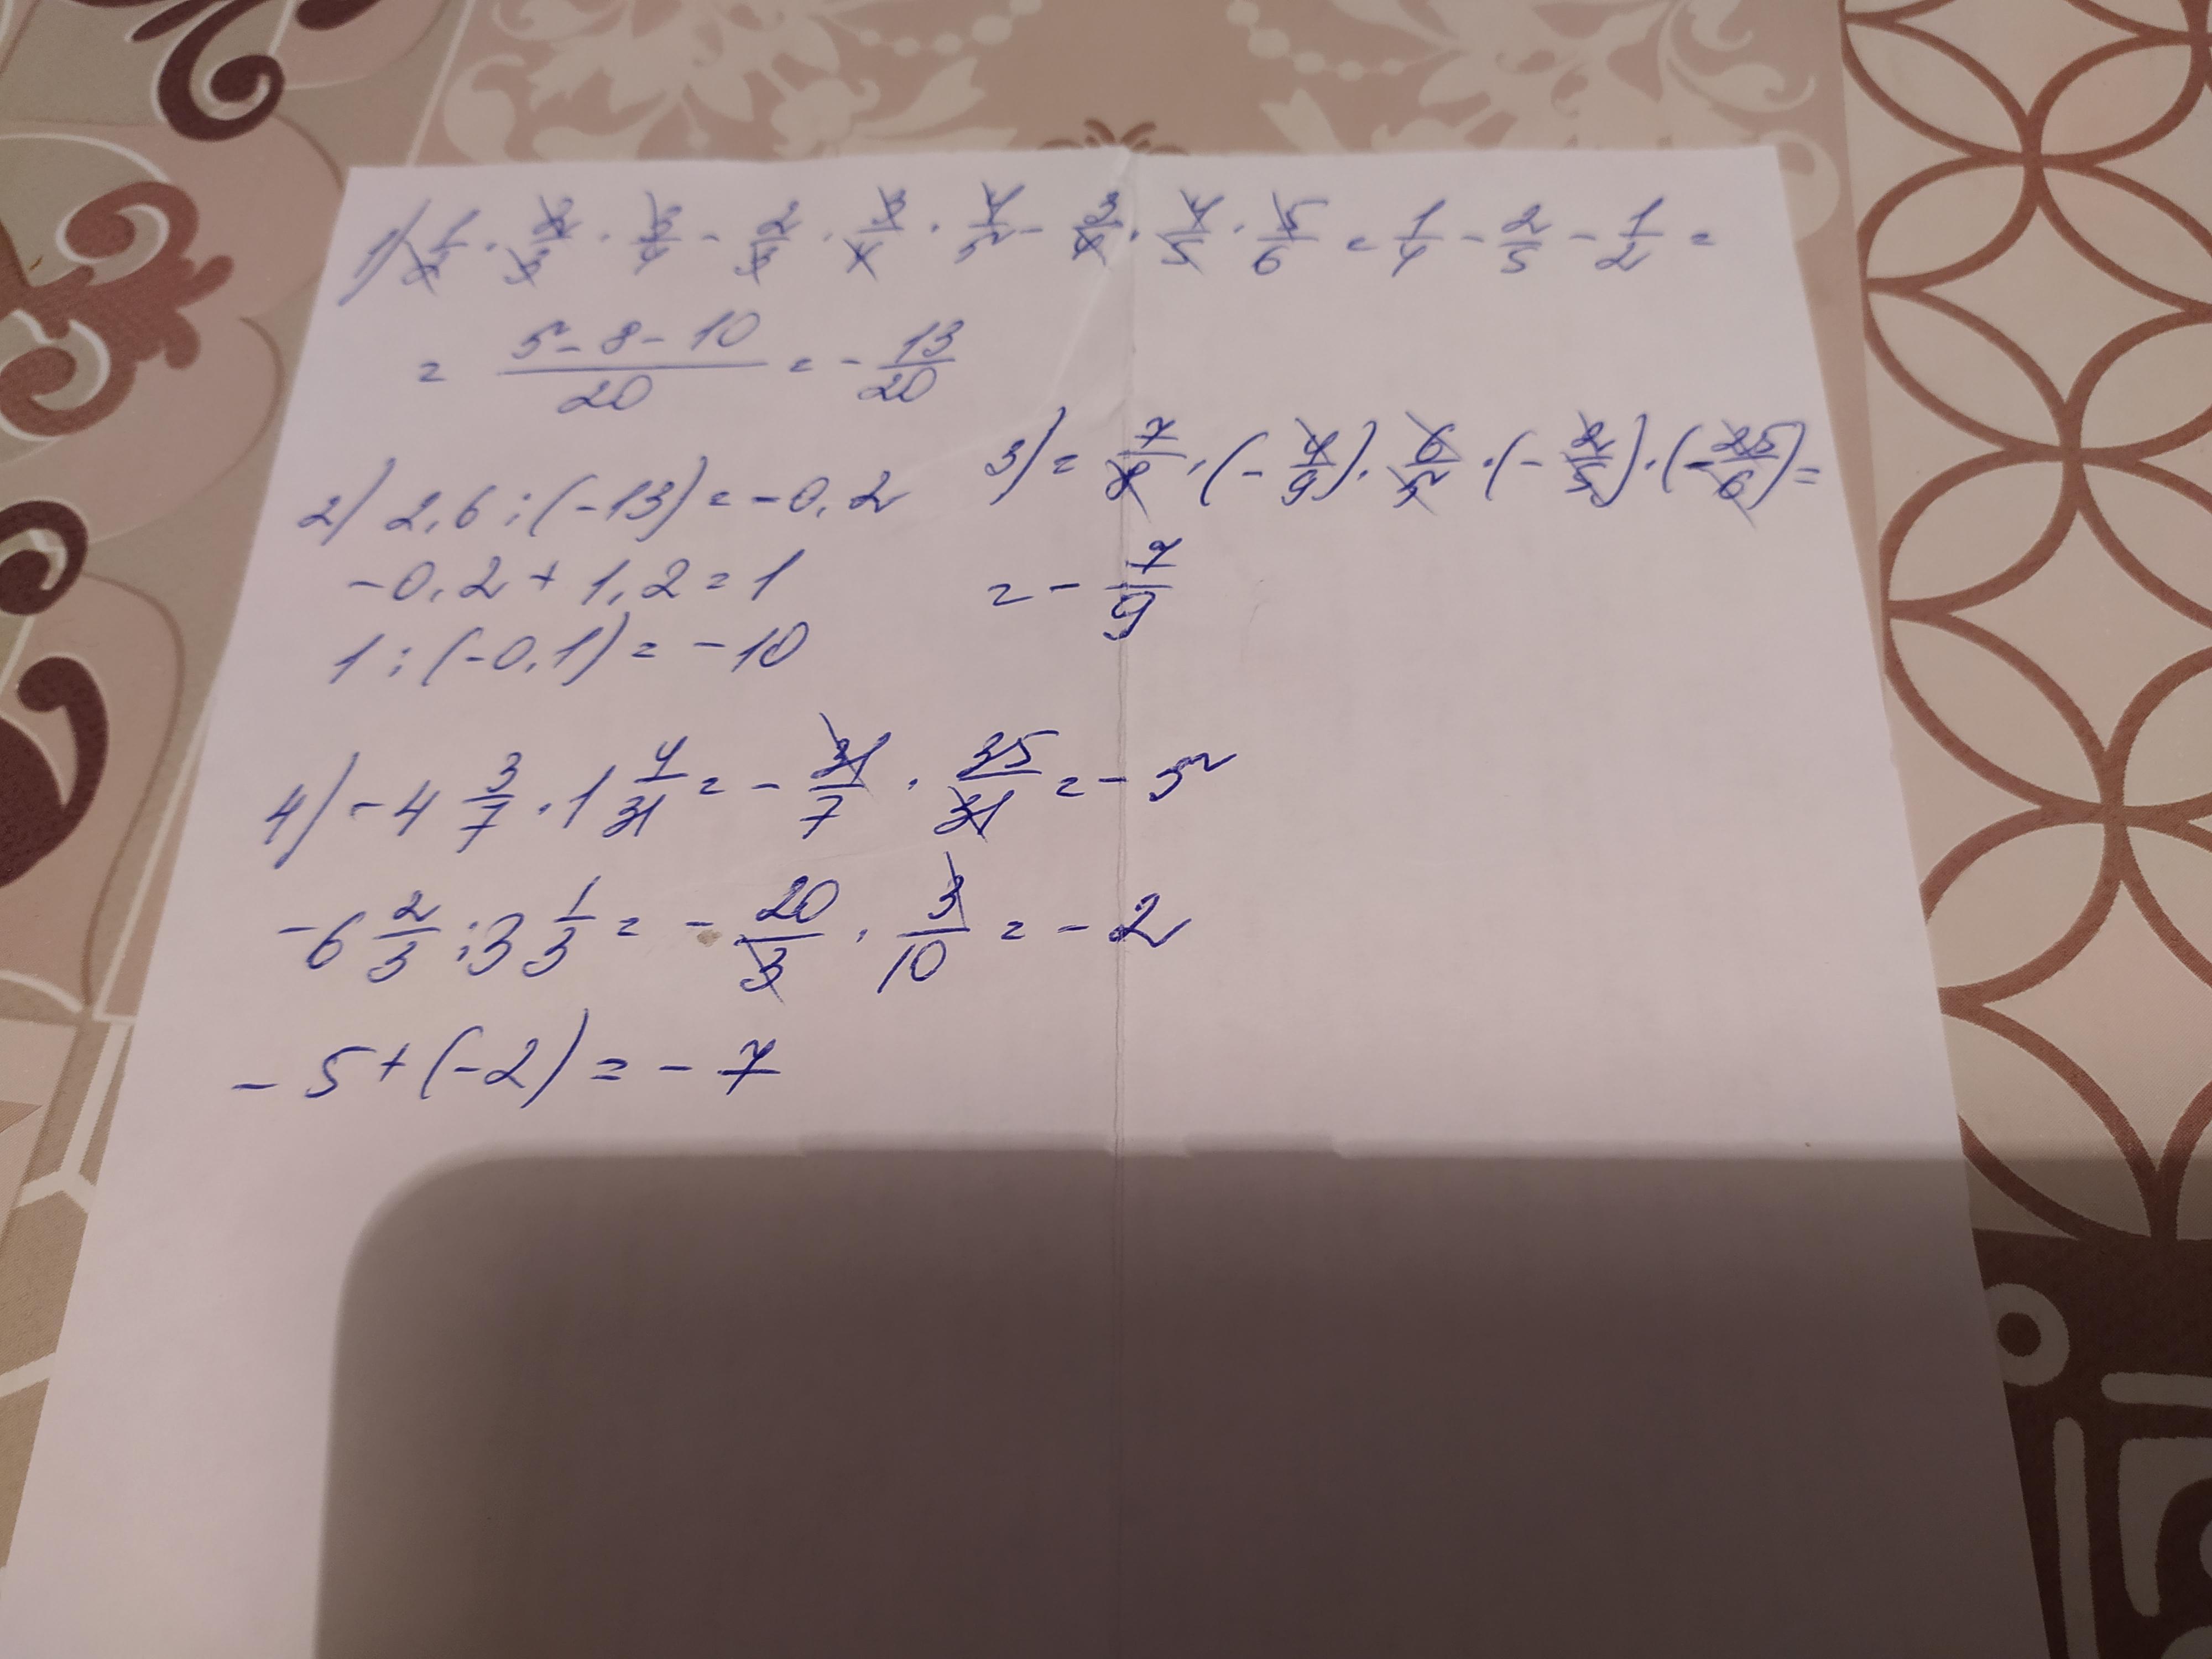 1) 1/2 · 2/3 · 3/4 - 2/3 · 3/4 · 4/5 - 3/4 · 4/5 · 5/6 = 1/4 - 2/5 - 1/2 =
= (5 - 8 - 10)/20 = - 13/20
2) 2,6 : (-13) = -0,2
-0,2 + 1,2 = 1
1 : (-0,1) = -10
3) = 7/8 · (- 4/9) · 6/5 · (- 2/5) · (- 25/6) =
= - 7/9
4) -4 3/7 · 1 4/31 = - 31/7 · 35/31 = - 5
-6 2/3 : 3 1/3 = - 20/3 · 3/10 = - 2
- 5 + (-2) = - 7